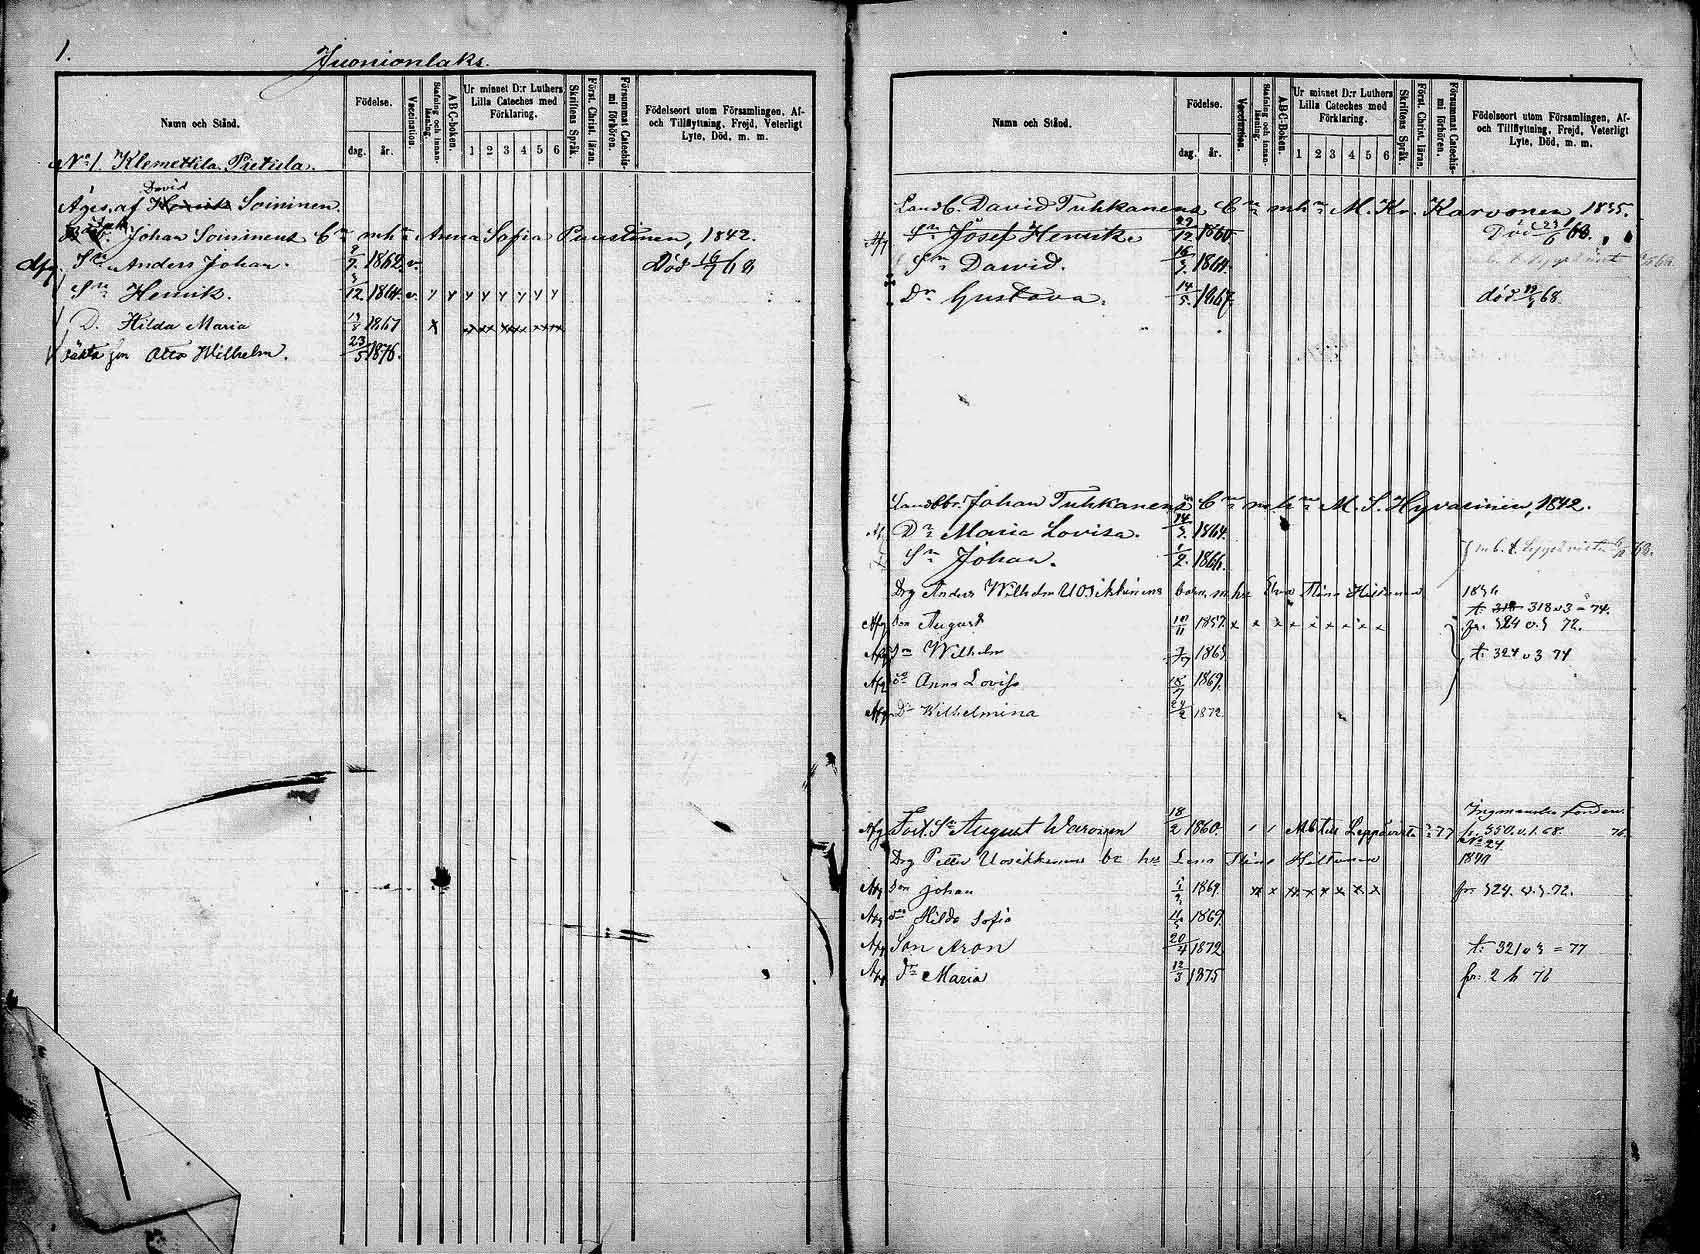 1.
Juonionlaks.
Namn och Stånd.
Födelse.
dag.
år.
Vaccination.
Stafning och innan-läsning.
ABC-boken.
Ur minnet D:r Luthers Lilla Cateches med Förklaring.
1 2 3 4 5 6
Skriftens Språk.
Först. Christ. läran.
Försummat Catechismi förhören.
Födelseort utom Församlingen, Af-
och Tillflyttning, Frejd, Veterligt
Lyte, Död, m. m.
No 1. Klemettila Pietula.
David
Äges af Henrik Soininen.
Johan Soininens Cn m hn Anna Sofia Puustinen, 1842.
Afg. Sn Anders Johan. 9/7. 1862. v. död 16/7 68
Sn Henrik. 3/12 1864. v. y y y y y y y y
D. Hilda Maria 1867 x
oäkta son Otto Wilhelm. 23/5 1876.
Namn och Stånd.
Födelse.
dag.
år.
Vaccination.
Stafning och innan-läsning.
ABC-Boken.
Ur minnet D:r Luthers
Lilla Cateches med
Förklaring.
1 2 3 4 5 6
Skriftens Språk.
Först. Christ. läran.
Försummat Catechis-mi förhören.
Födelseort utom Församlingen, Af-
och Tillflyttning, Frejd, Veterligt
Lyte, Död, m. m.
Landb. David Tuhkanens Cn m hn M. Kr. Karvonen 1835.
Afg Sn Josef Henrik. 29/12 1860. Död 23/6 68.
Sn Dawid. 16/3. 1864.
Dr Gustava. 14/5. 1867. död 68
Landbr. Johan Tuhkanens Cn m hn M. S. Hyvärinen, 1842.
Dr Maria Lovisa. 14/3. 1864.
Sn Johan. 1/2. 1866. m. b. t. Leppävirta 68.
Drg Anders Wilhelm Uosikkinens barn m hu Stina Hiltunen
t: 318 318 v 3 = 74.
Afg Son August 1857. x x x x x x x x x fr. 324 v. 3 72.
Afg Sn Wilhelm 1865 t: 324 v 3 74
Afg Dr Anna Lovisa 18/7 1869.
Afg Dr Wilhelmina 24/2 1872
Afg Fost. Sn August Waronen 18/2 1860. Ab till Leppävirta 77 fr. 550. v. 1. 68. 76.
No 24.
Drg Petter Uosikkinens bn hu Lena Stina Hiltunen
Afg Son Johan 1869 xx x xx x x x x x fr. 324. v. 3. 72.
Afg Dr Hilda Sofia 1869.
Afg Son Aron 20/4 1872 t: 321 v 3 = 77
Afg Dr Maria 12/3 1875 fr: 2 h 76